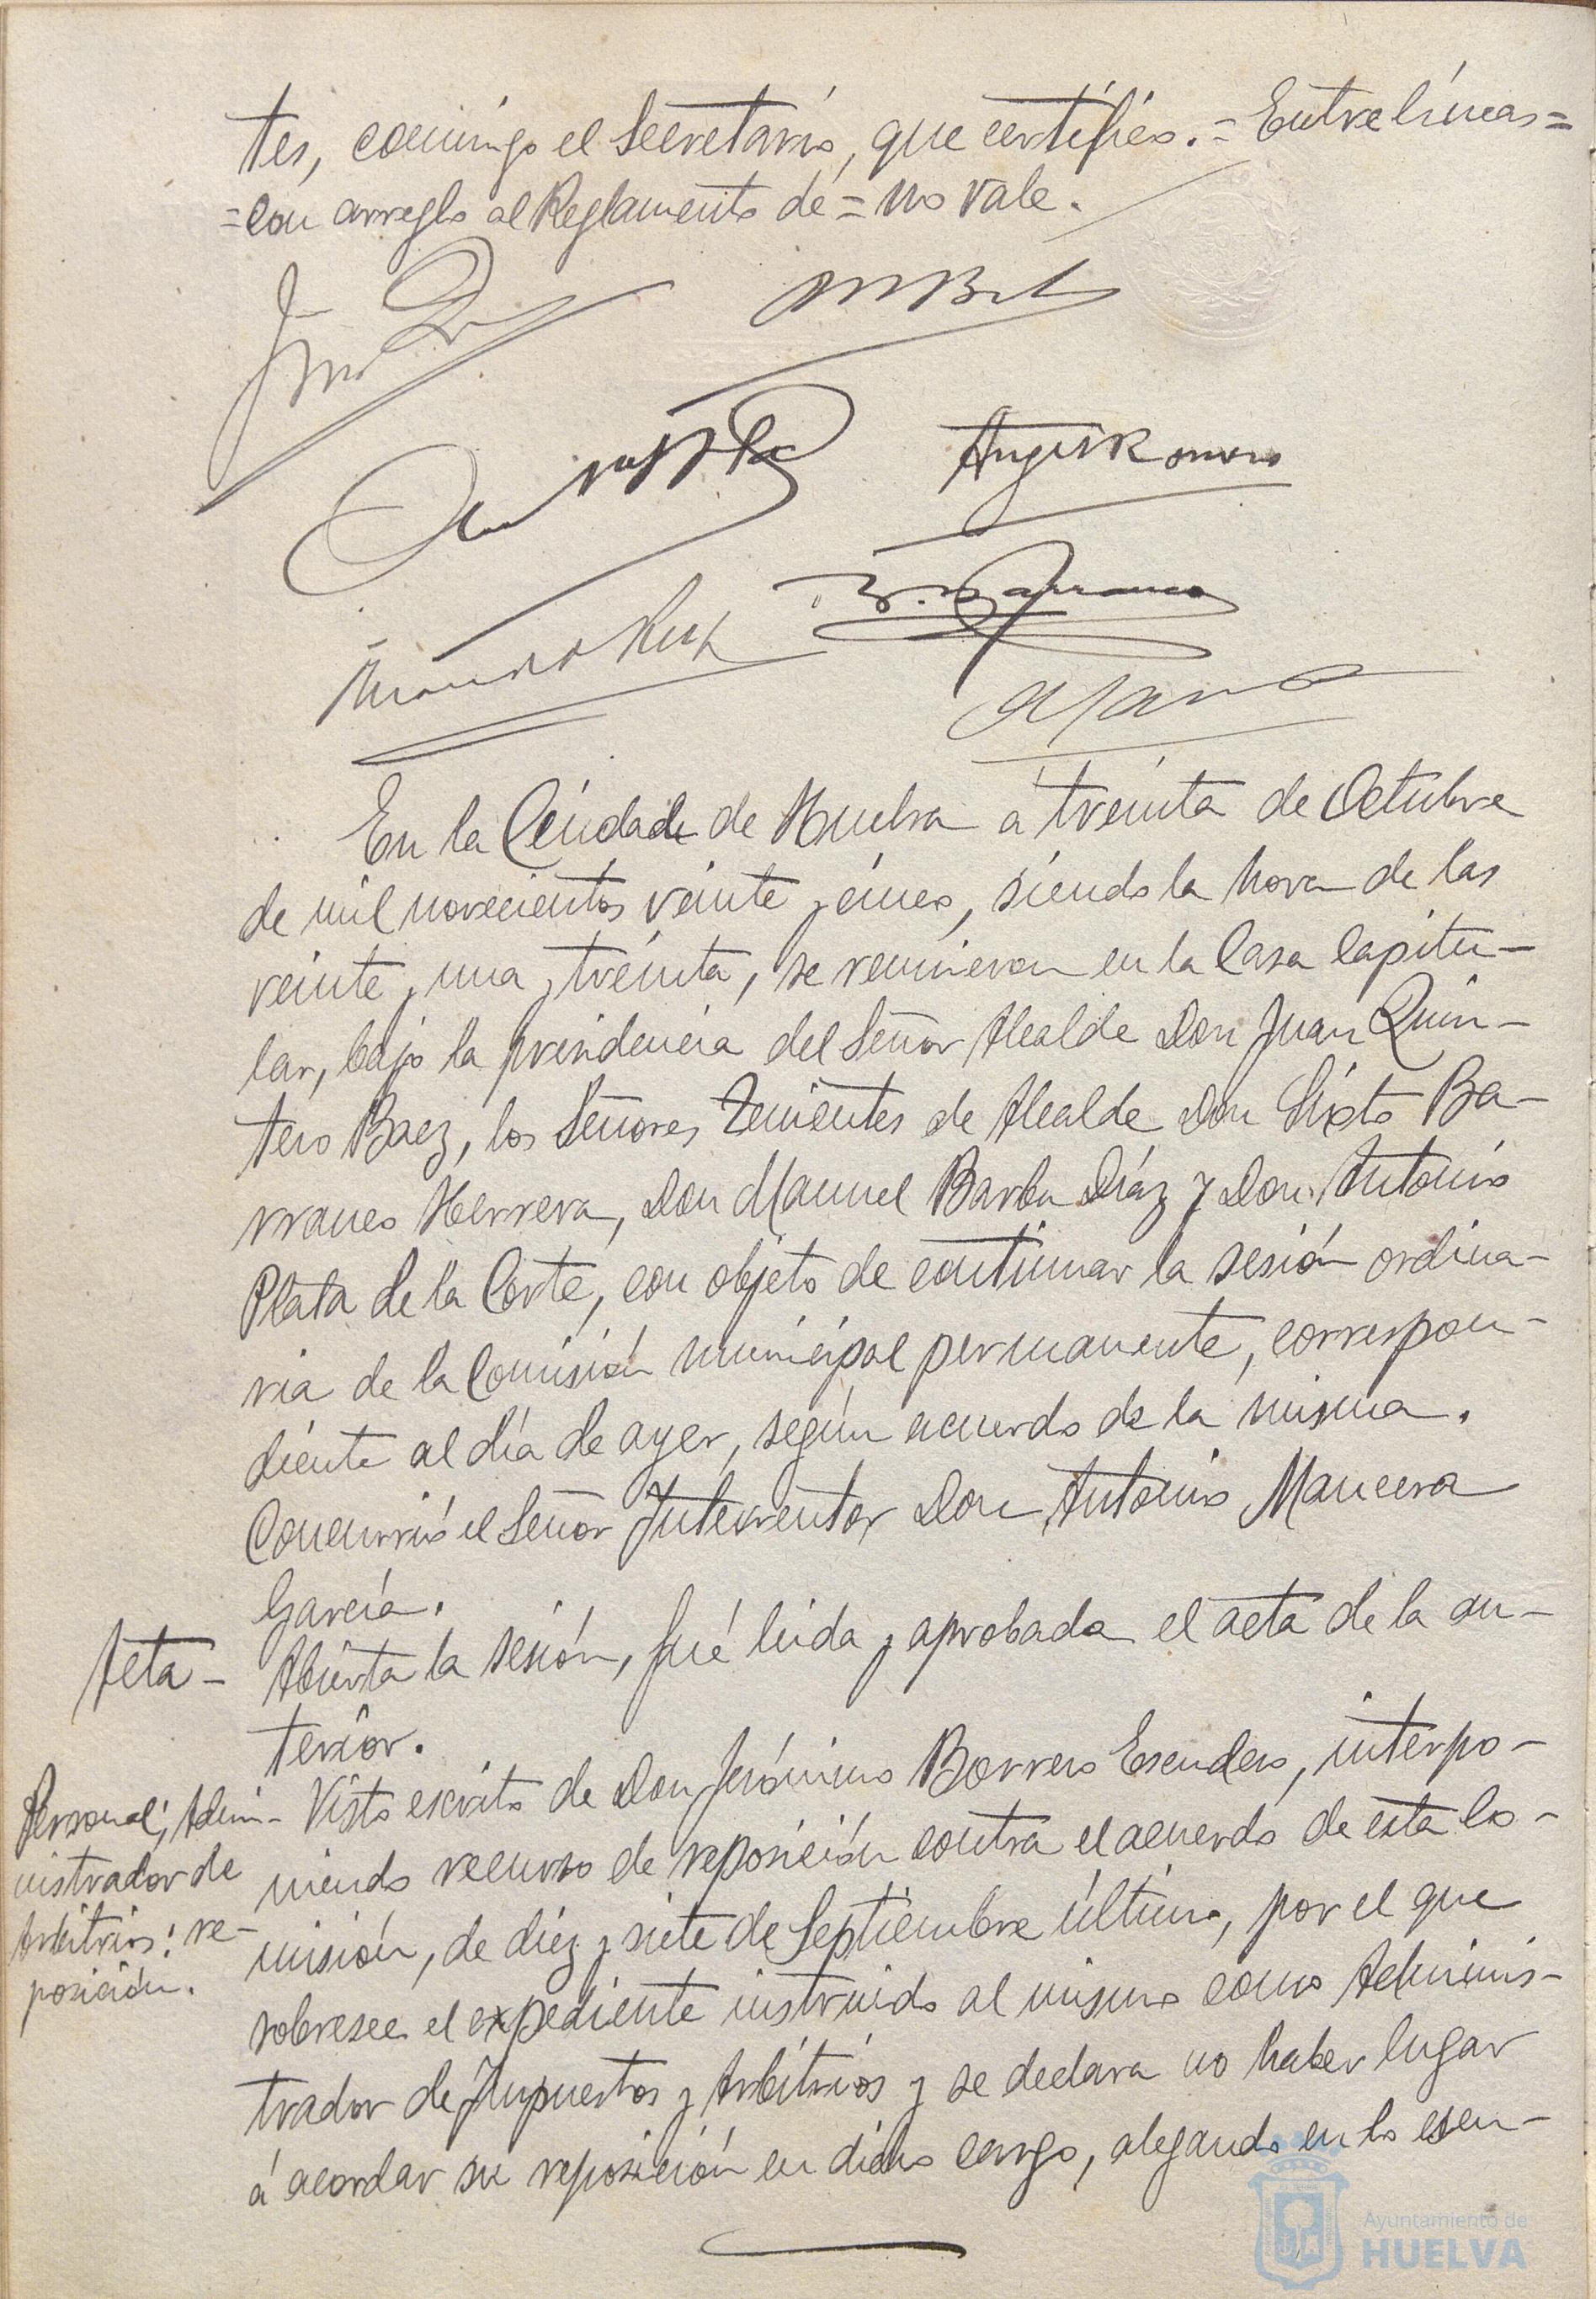 tes, conmigo el Secretario, que certifico. = Entre líneas =
= con arreglo al Reglamento de = no vale.
Angel Romero
En la Ciudad de Huelva a treinta de Octubre
de mil novecientos veinte y cinco, siendo la hora de las
veinte y una y treinta, se reunieron en la Casa Capitu-
lar, bajo la presidencia del Señor Alcalde Don Juan Quin-
tero Baez, los Señores Tenientes de Alcalde Don Sixto Ba-
rranco Herrera, Don Manuel Barba Díaz y Don Antonio
Plata de la Corte, con objeto de continuar la sesión ordina-
ria de la Comisión municipal permanente, correspon-
diente al día de ayer, según acuerdo de la misma.
Concurrió el Señor Interventor Don Antonio Mancera
García.
Acta - Abierta la sesión, fué leida y aprobada el acta de la an-
terior.
Personal; Admi- Visto escrito de Don Jerónimo Borrero Escudero, interpo-
nistrador de niendo recurso de reposición contra el acuerdo de esta Co-
Arbitrios: re- misión, de diez y siete de Septiembre último, por el que
posición. sobresee el expediente instruido al mismo como Adminis-
trador de Impuestos y Arbitrios y se declara no haber lugar
á acordar su reposición en dicho cargo, alegando en lo esen-
Ayuntamiento de
HUELVA